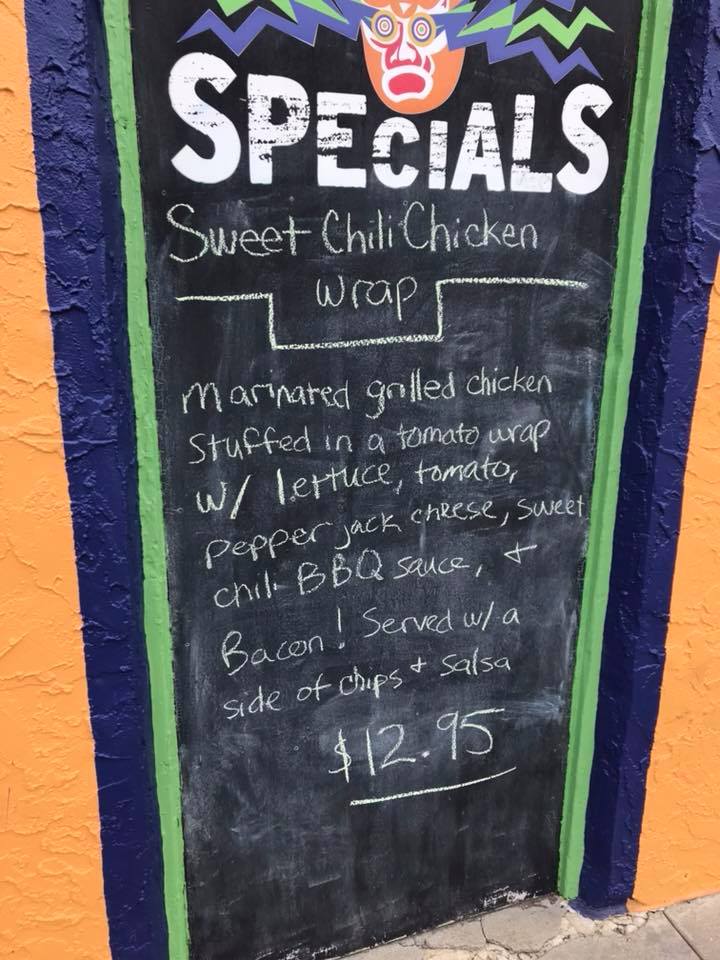 SPECIALS
Sweet Chili Chicken
Wrap
Marinated grilled chicken
Stuffed in a tomato wrap
w/ lettuce, tomato,
pepper jack cheese, sweet
chili BBQ sauce, +
Bacon! Served w/ a
side of chips + Salsa
$12.95